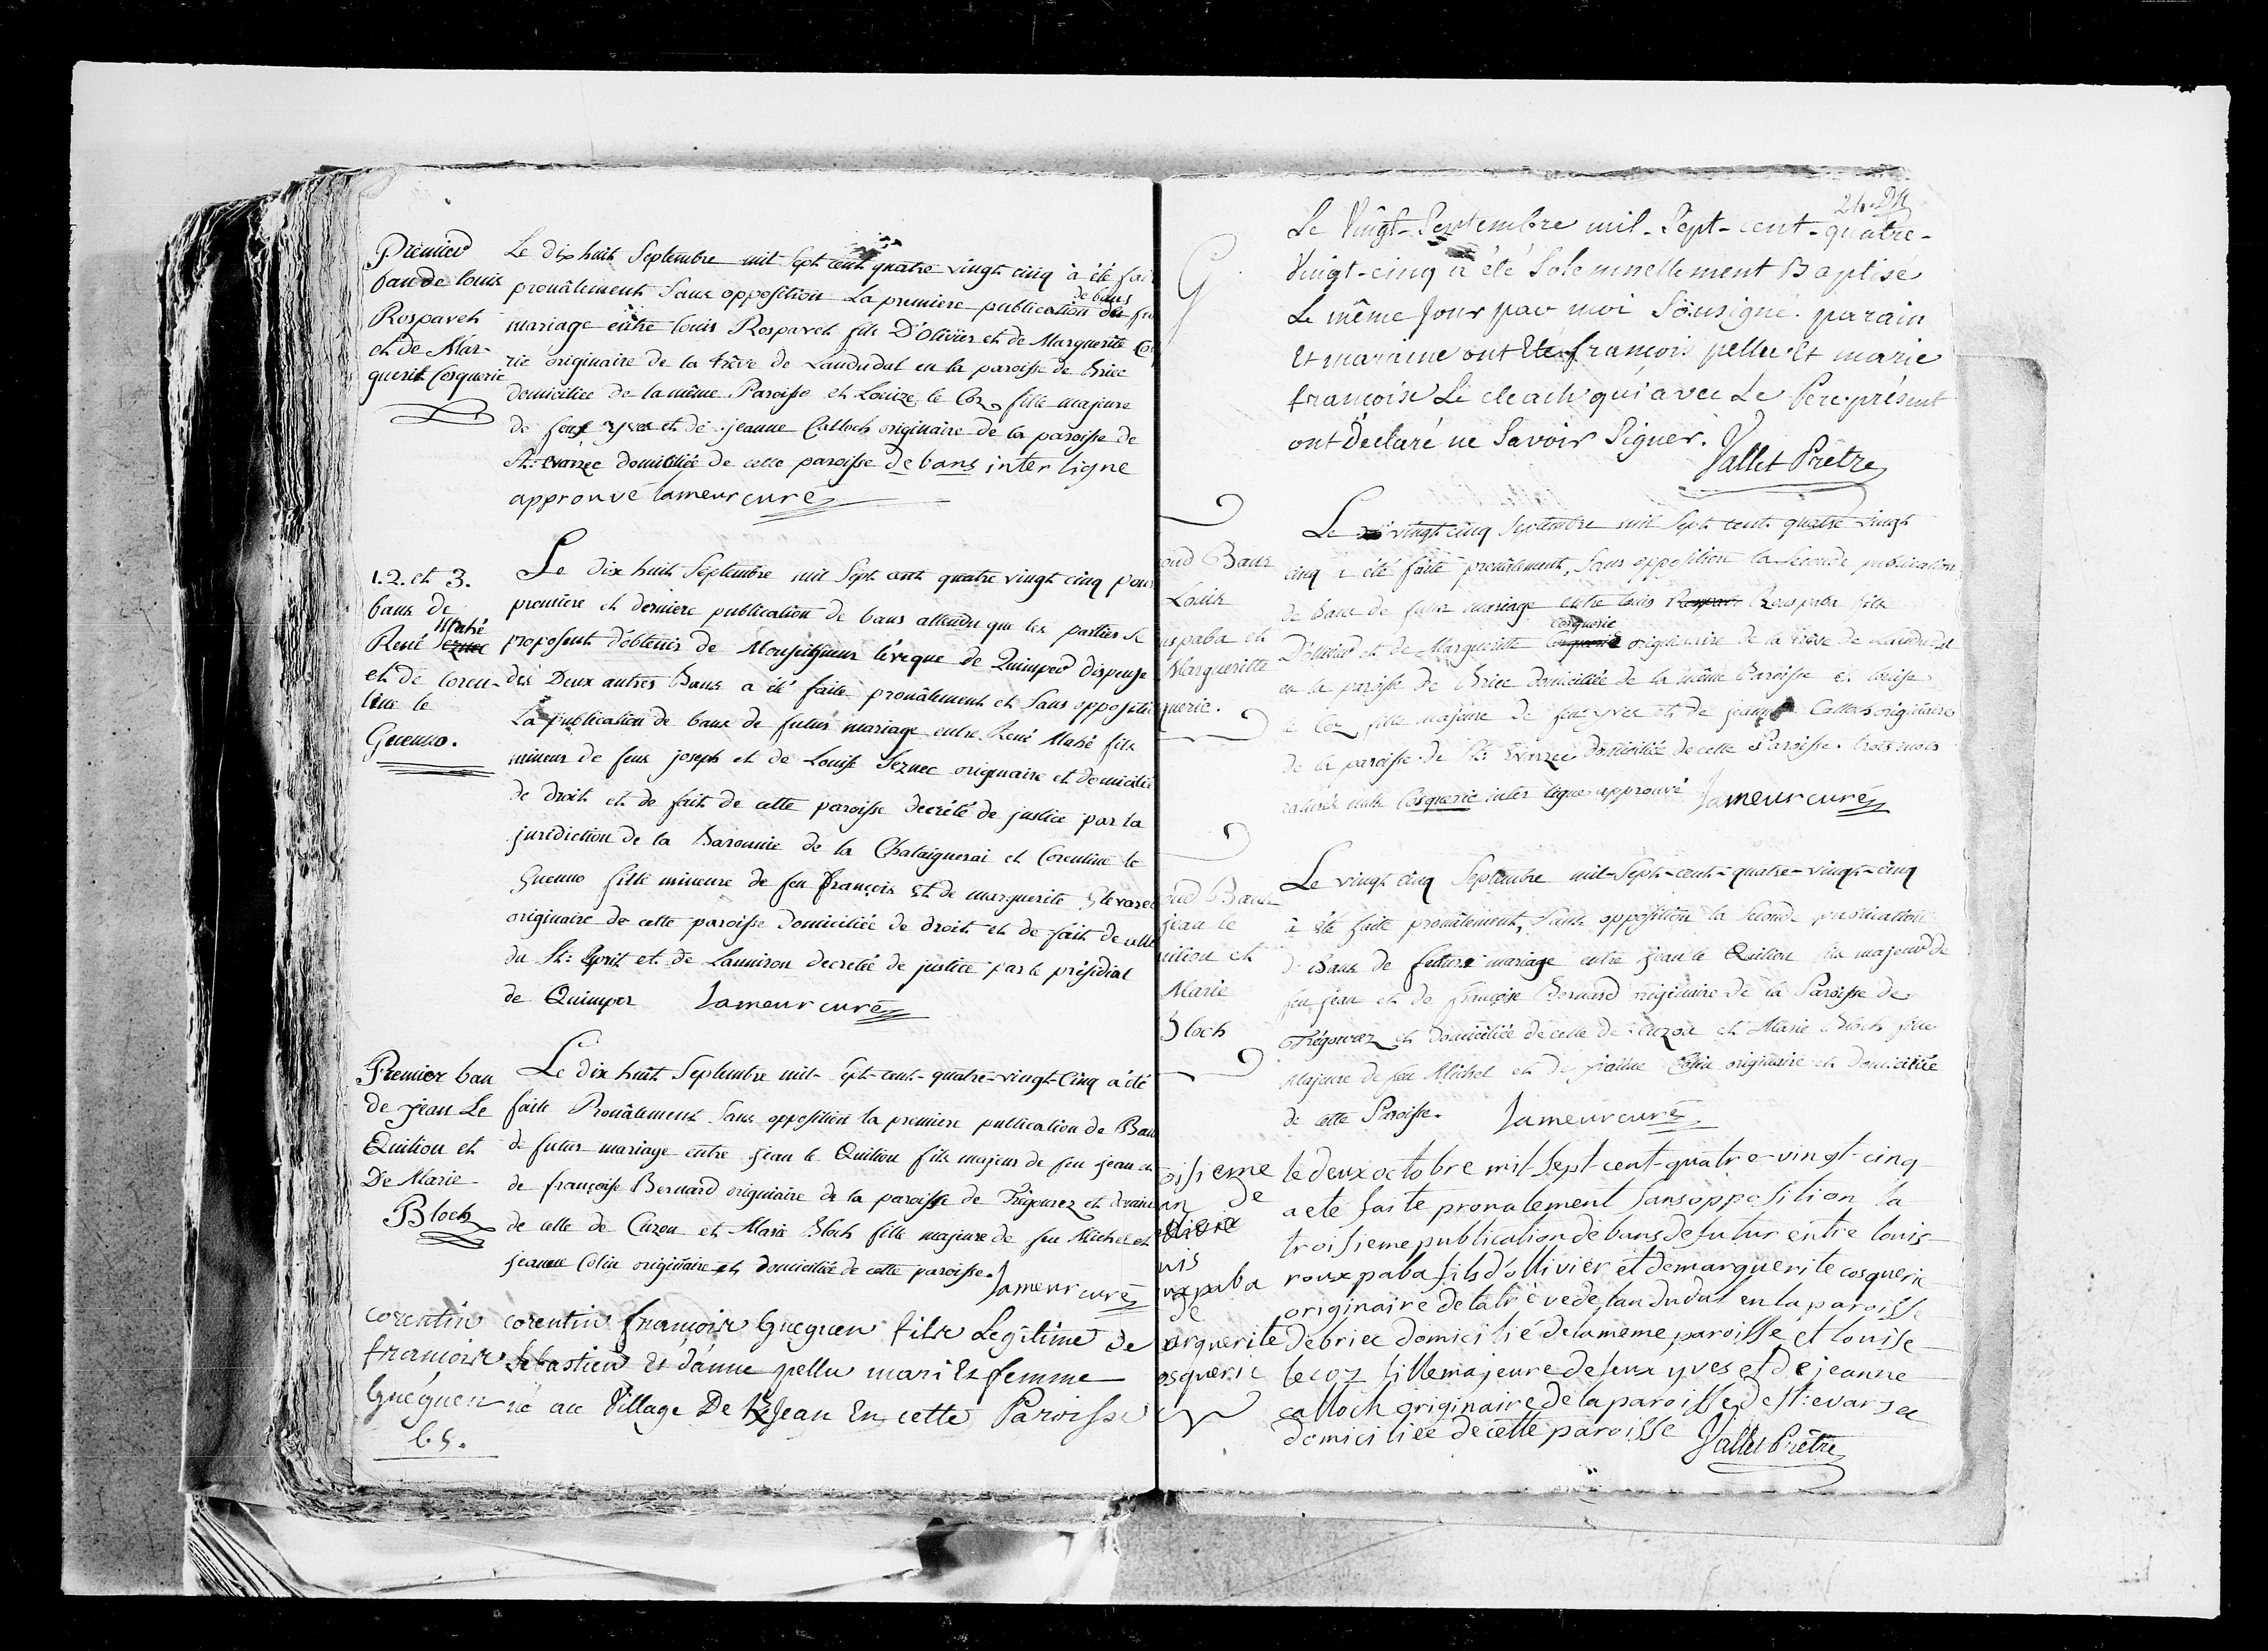 Premier
ban de louis
Rospaveh
et de Mar-
guerit Cosquerie
Le dix huit Septembre mil Sept cent quatre vingt cinq à été fai
pronâlement Sans opposition La premiere publication de bans du fu
mariage entre louis Rospaveh fils D'Olivier et de Marguerite Cos
rie originaire de la trêve de Landudal en la paroisse de Briec
domiciliee de la même Paroisse et Louize le Coz fille majeure
de feux yves et de jeanne Calloch originaire de la paroisse de
St: Evarzec domiciliée de cette paroisse de bans interligne
approuvé Lameur curé
1. 2. et 3.
bans de
René Seznec Mahé
et de Coren-
tine le
Guenno.
Le dix huit Septembre mil Sept cent quatre vingt cinq pour
premiere et derniere publication de bans attendu que les parties se
proposent d'obtenir de Monseigneur l'évêque de Quimper dispense
des Deux autres Bans a été faite pronâlement et Sans oppositi
La publication de bans de futur mariage entre René Mahé fils
mineur de feux joseph et de Louise Seznec originaire et domicilié
de droit et de fait de cette paroisse decrété de justice par la
juridiction de la Baronnie de la Chataignerai et Corentine le
Guenno fille mineure de feu François Et de marguerite Glevarec
originaire de cette paroisse domiciliée de droit et de fait de celle
du St: Esprit et de Lanniron decretée de justice par le présidial
de Quimper Lameur curé
Premier ban
de jean Le
Quition et
De Marie
Bloch
Le dix huit Septembre mil-Sept-cent-quatre-vingt-Cinq a été
faite Pronâlement Sans opposition la premiere publication de Ban
de futur mariage entre jean le Quition fils majeur de feu jean et
de françoise Bernard originaire de la paroisse de Trégourez et
de celle de Cuzon et Marie Bloch fille majeure de feu Michel et
jeanne Colin originaire et domiciliée de cette paroisse.
Lameur curé
corentin
françois
Guéguen
l. g.
corentin françois Gueguen fils Legitime de
Sébastien Et d'anne pellu mari Et femme
né au Village De Jean En cette Paroisse
24. Dll
Le Vingt-Septembre mil-Sept-cent-quatre-
Vingt-cinq à été Solemnellement Baptisé
Le même Jour par moi Soüsigné. parain
Et maraine ont Eté françois pellu Et marie
françoise Le cleach qui avec Le Pere présent
ont Déclaré ne Savoir Signer.
Vallet Prêtre
ond Bans
Louis
uspaba et
Margueritte
querie.
Le vingt cinq Septembre mil Sept cent quatre vingt
cinq à été faite pronâlement, Sans opposition la Seconde publication
de bans de futur mariage entre louis Rospave Rouspaba fils
D'olivier et de Margueritte Cosquerie Cosquerie originaire de la trêve de Landudal
en la paroisse de Briec domiciliée de la même Paroisse et louise
le Coz fille majeure de feu yves et de jeanne Calloch originaire
de la paroisse de St: Evarzec domiciliée de cette Paroisse. trois mots
raturés nuls Cosquerie inter ligne approuvé Lameur curé
ond Bans
jean le
uition et
Marie
Bloch
Le vingt cinq Septembre mil-Sept-cent-quatre-vingt-cinq
à été faite pronâlement, Sans opposition la Seconde publication
de Bans de futur mariage entre jean le Quition fils majeur de
feu jean et de françoise Bernard originaire de la Paroisse de
Trégourez et domiciliée de celle de Cuzon et Marie Bloch fille
Majeure de feu Michel et de jeanne Colin originaire et domiciliée
de cette Paroisse. Lameur curé
oisieme
an de
uis
uxpaba
de
arguerite
osquerie
le deux octobre mil-sept-cent-quatre-vingt-cinq
a ete faite pronalement sans opposition la
troisieme publication de bans de futur entre louis
rouxpaba fils d'ollivier et de marguerite cosquerie
originaire de la trève de landudal en la paroisse
de briec domicilié de la meme paroisse et louise
le coz fille majeure de feux yves et de jeanne
calloch originaire de la paroisse de st: evarzec
domiciliée de cette paroisse Vallet Prêtre